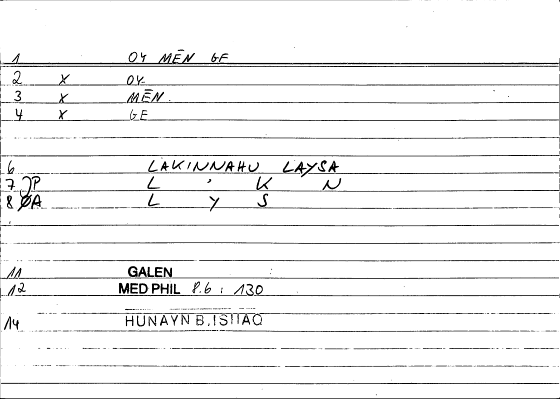 1 OY MĒN GE
2 X OY
3 X MĒN
4 X GE
6 LAKINNAHU LAYSA
7 JP L ' K N
8 ØA L Y S
11 GALEN
12 MED PHIL P.6 : 130
14 HUNAYN B. ISHAQ